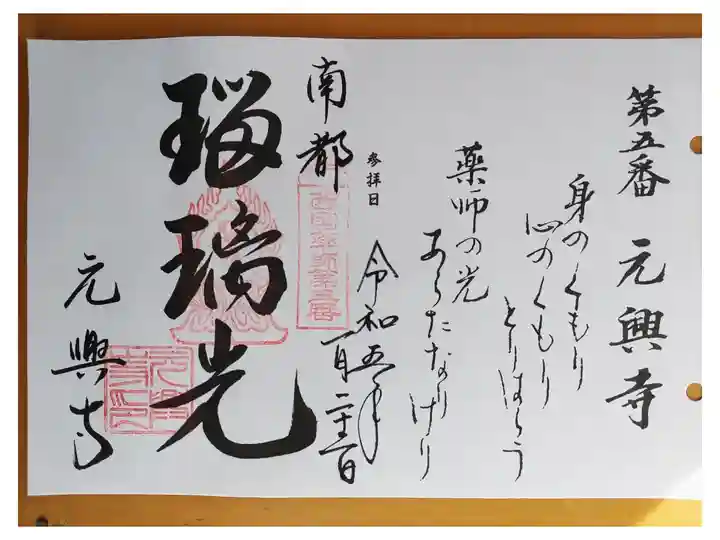 第五番 元興寺
身のくもり
心のくもり
とりはらう
薬師の光
あらたなりけり
參拝日
令和五年
一月二十三日
南都
瑠璃光
元興寺